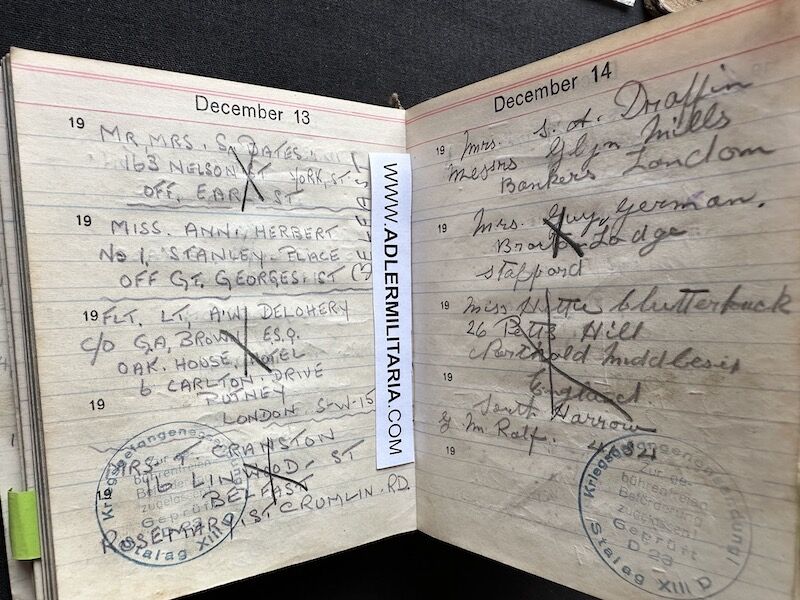 December 13
19 MR, MRS. S. BATES.
163 NELSON ST YORK, ST
OFF, EARL ST
BELFAST
19 MISS. ANN, HERBERT
No 1, STANLEY. PLACE
OFF GT. GEORGES. ST
19 FLT. LT, A.W. DELOHERY
C/O G.A, BROWN ESQ.
OAK. HOUSE, HOTEL
6 CARLTON. DRIVE
19 PUTNEY
LONDON. S-W-15
MRS. T. CRANSTON
16 LINWOOD ST
BELFAST
ROSEMARY ST CRUMLIN. RD.
Kriegsgefangenensendung!
Zur
Beförderung
zugelassen!
Geprüft
D 23
Stalag XIII D
WWW.ADLERMILITARIA.COM
December 14
19 Mrs. S. A. Draffin
Messrs Glyn Mills
Bankers London
19 Mrs. Guy, German.
Lodge
19 Miss Clutterbuck
26 Hill
19 England.
South Harrow
M Rolf.
19
Kriegsgefangenensendung!
Zur
Beförderung
zugelassen!
Geprüft
D 23
Stalag XIII D